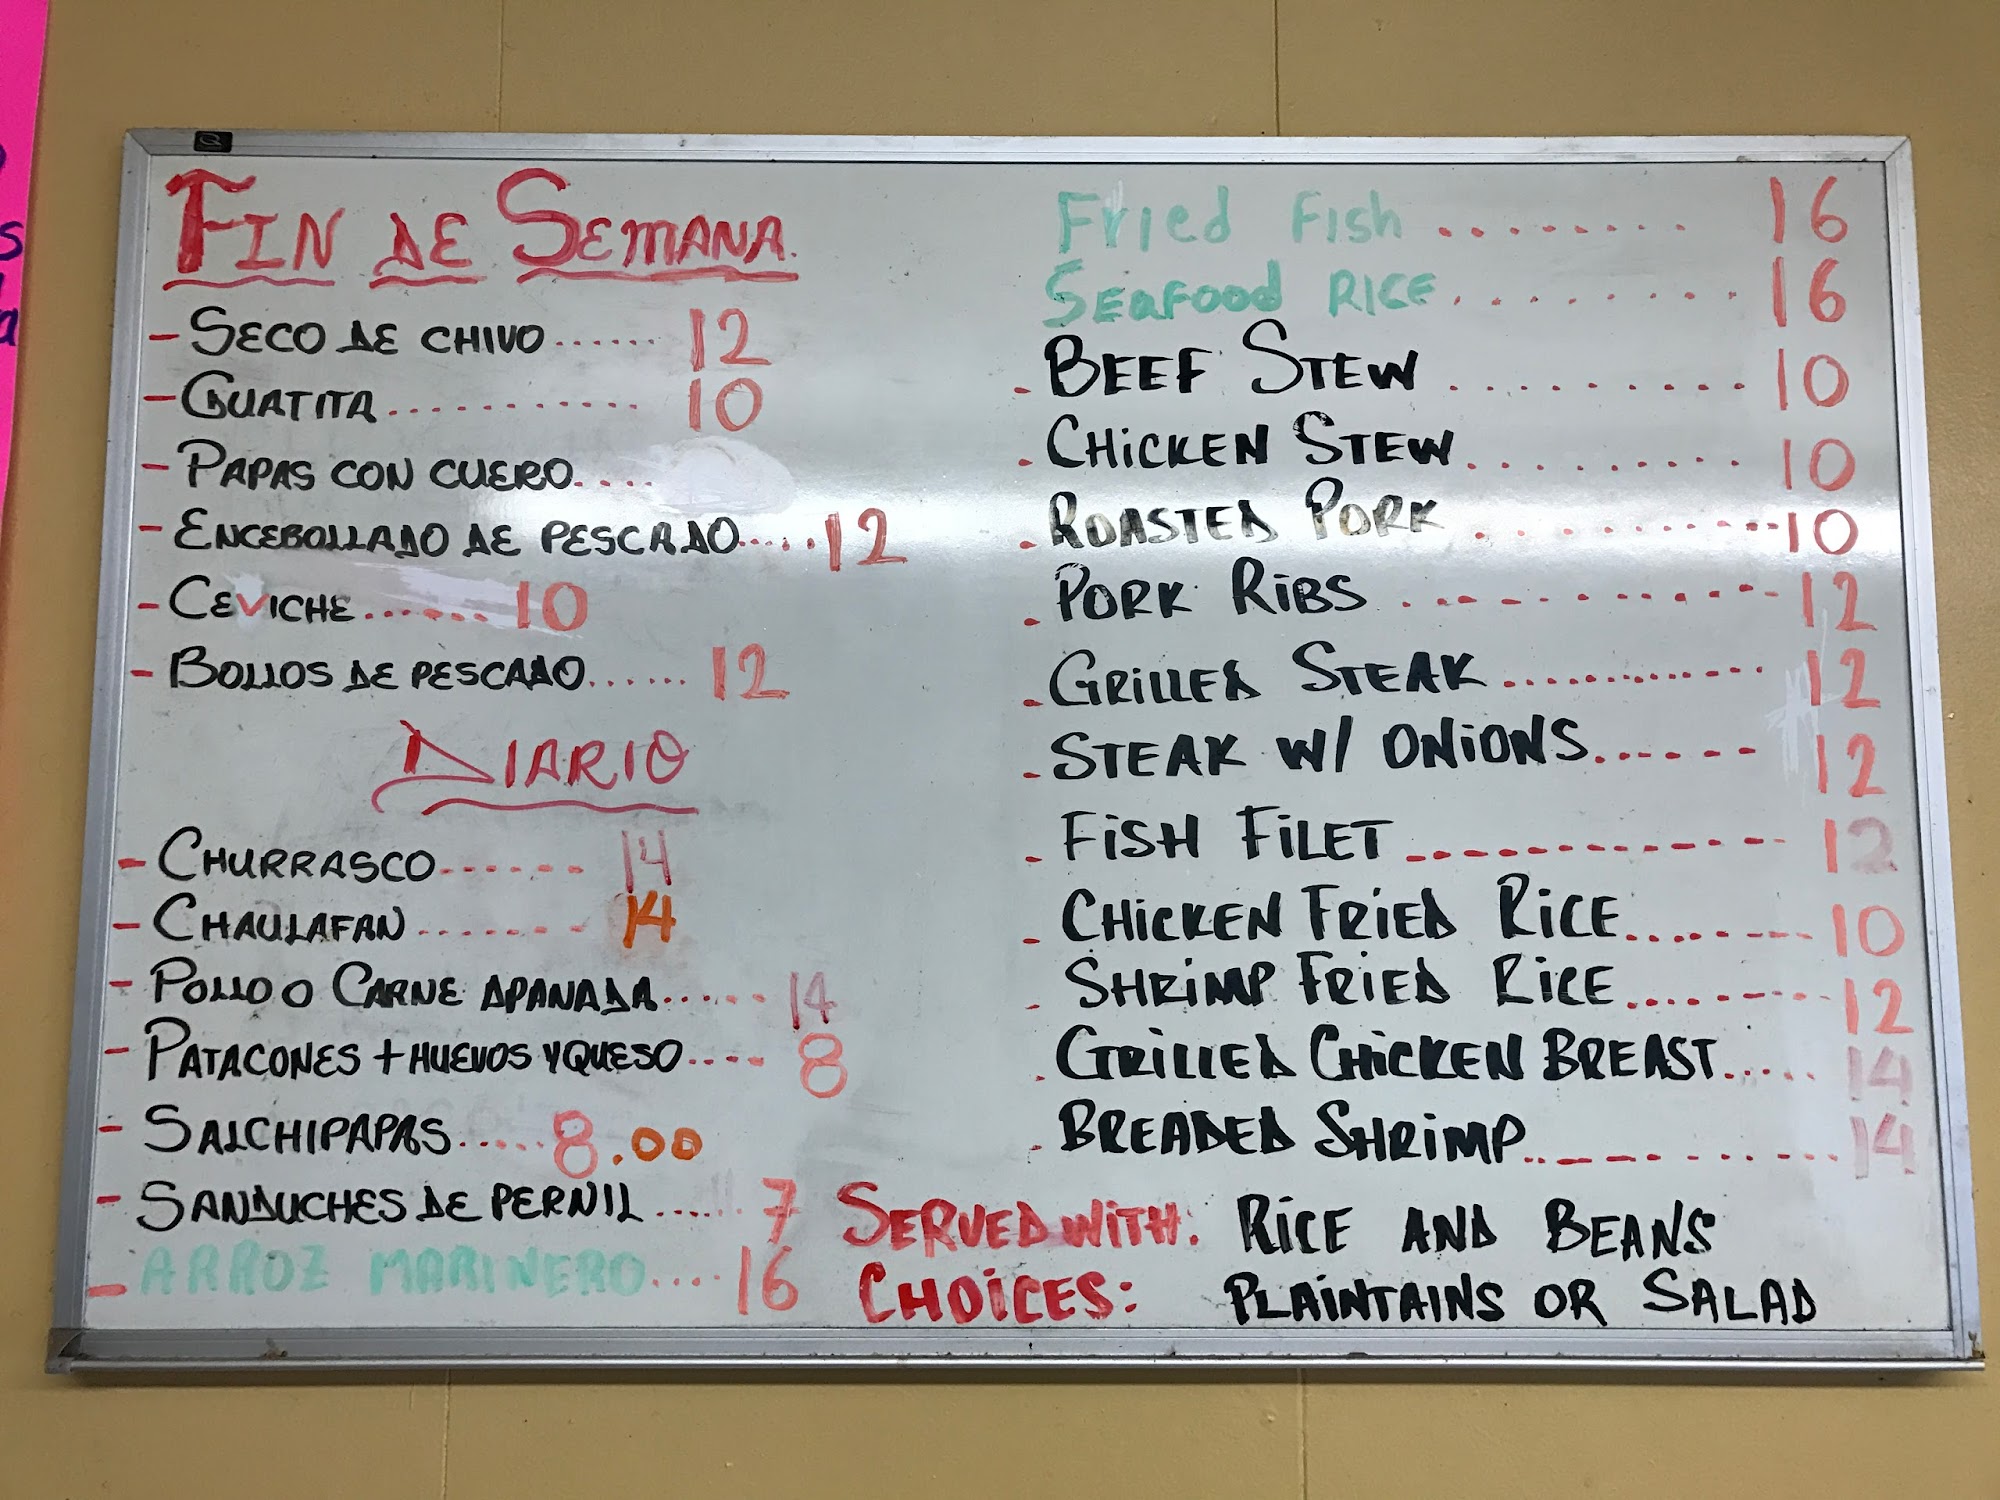 FIN DE SEMANA.
- SECO DE CHIVO ...... 12
- GUATITA ............ 10
- PAPAS CON CUERO.....
- ENCEBOLLADO DE PESCADO..... 12
- CEVICHE....... 10
- BOLLOS DE PESCADO....... 12
DIARIO
- CHURRASCO....... 14
- CHAULAFAN ........ 14
- POLLO O CARNE APANADA...... 14
- PATACONES + HUEVOS Y QUESO.... 8
- SALCHIPAPAS..... 8.00
- SANDUCHES DE PERNIL ..... 7
- ARROZ MARINERO.... 16
Fried Fish ........ 16
SEAFOOD RICE......... 16
- BEEF STEW .......... 10
- CHICKEN STEW.......... 10
- ROASTED PORK .......... 10
- PORK RIBS .......... 12
- GRILLED STEAK ............. 12
- STEAK W/ ONIONS...... 12
- FISH FILET ............. 12
- CHICKEN FRIED RICE......... 10
- SHRIMP FRIED RICE......... 12
- GRILLED CHICKEN BREAST..... 14
- BREADED SHRIMP............ 14
SERVED WITH: RICE AND BEANS
CHOICES: PLAINTAINS OR SALAD